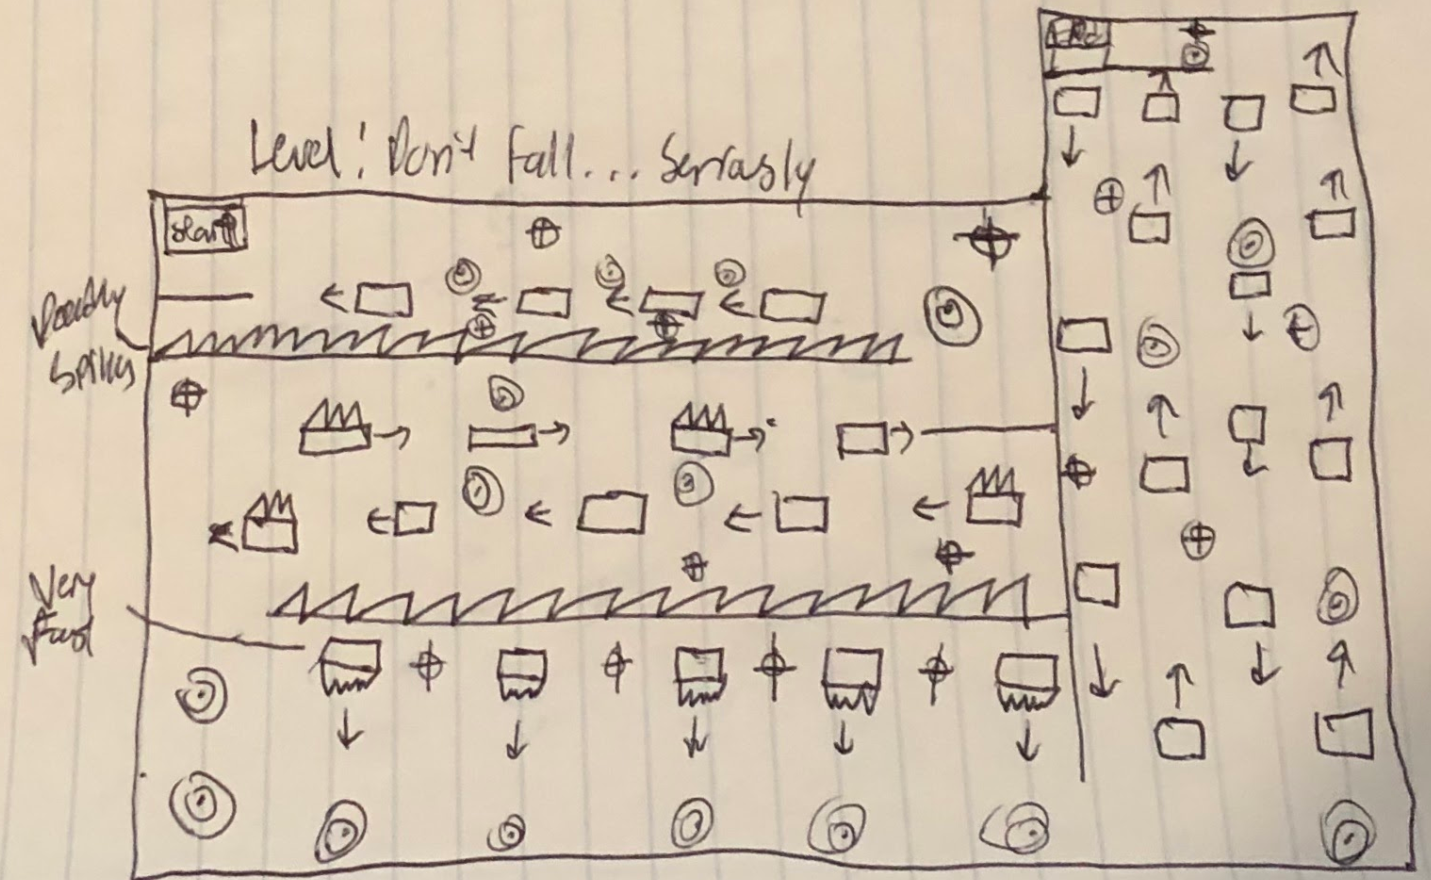 End
Level! Don't Fall... Seriasly
Start
Deadly
Spikes
Very
Fast